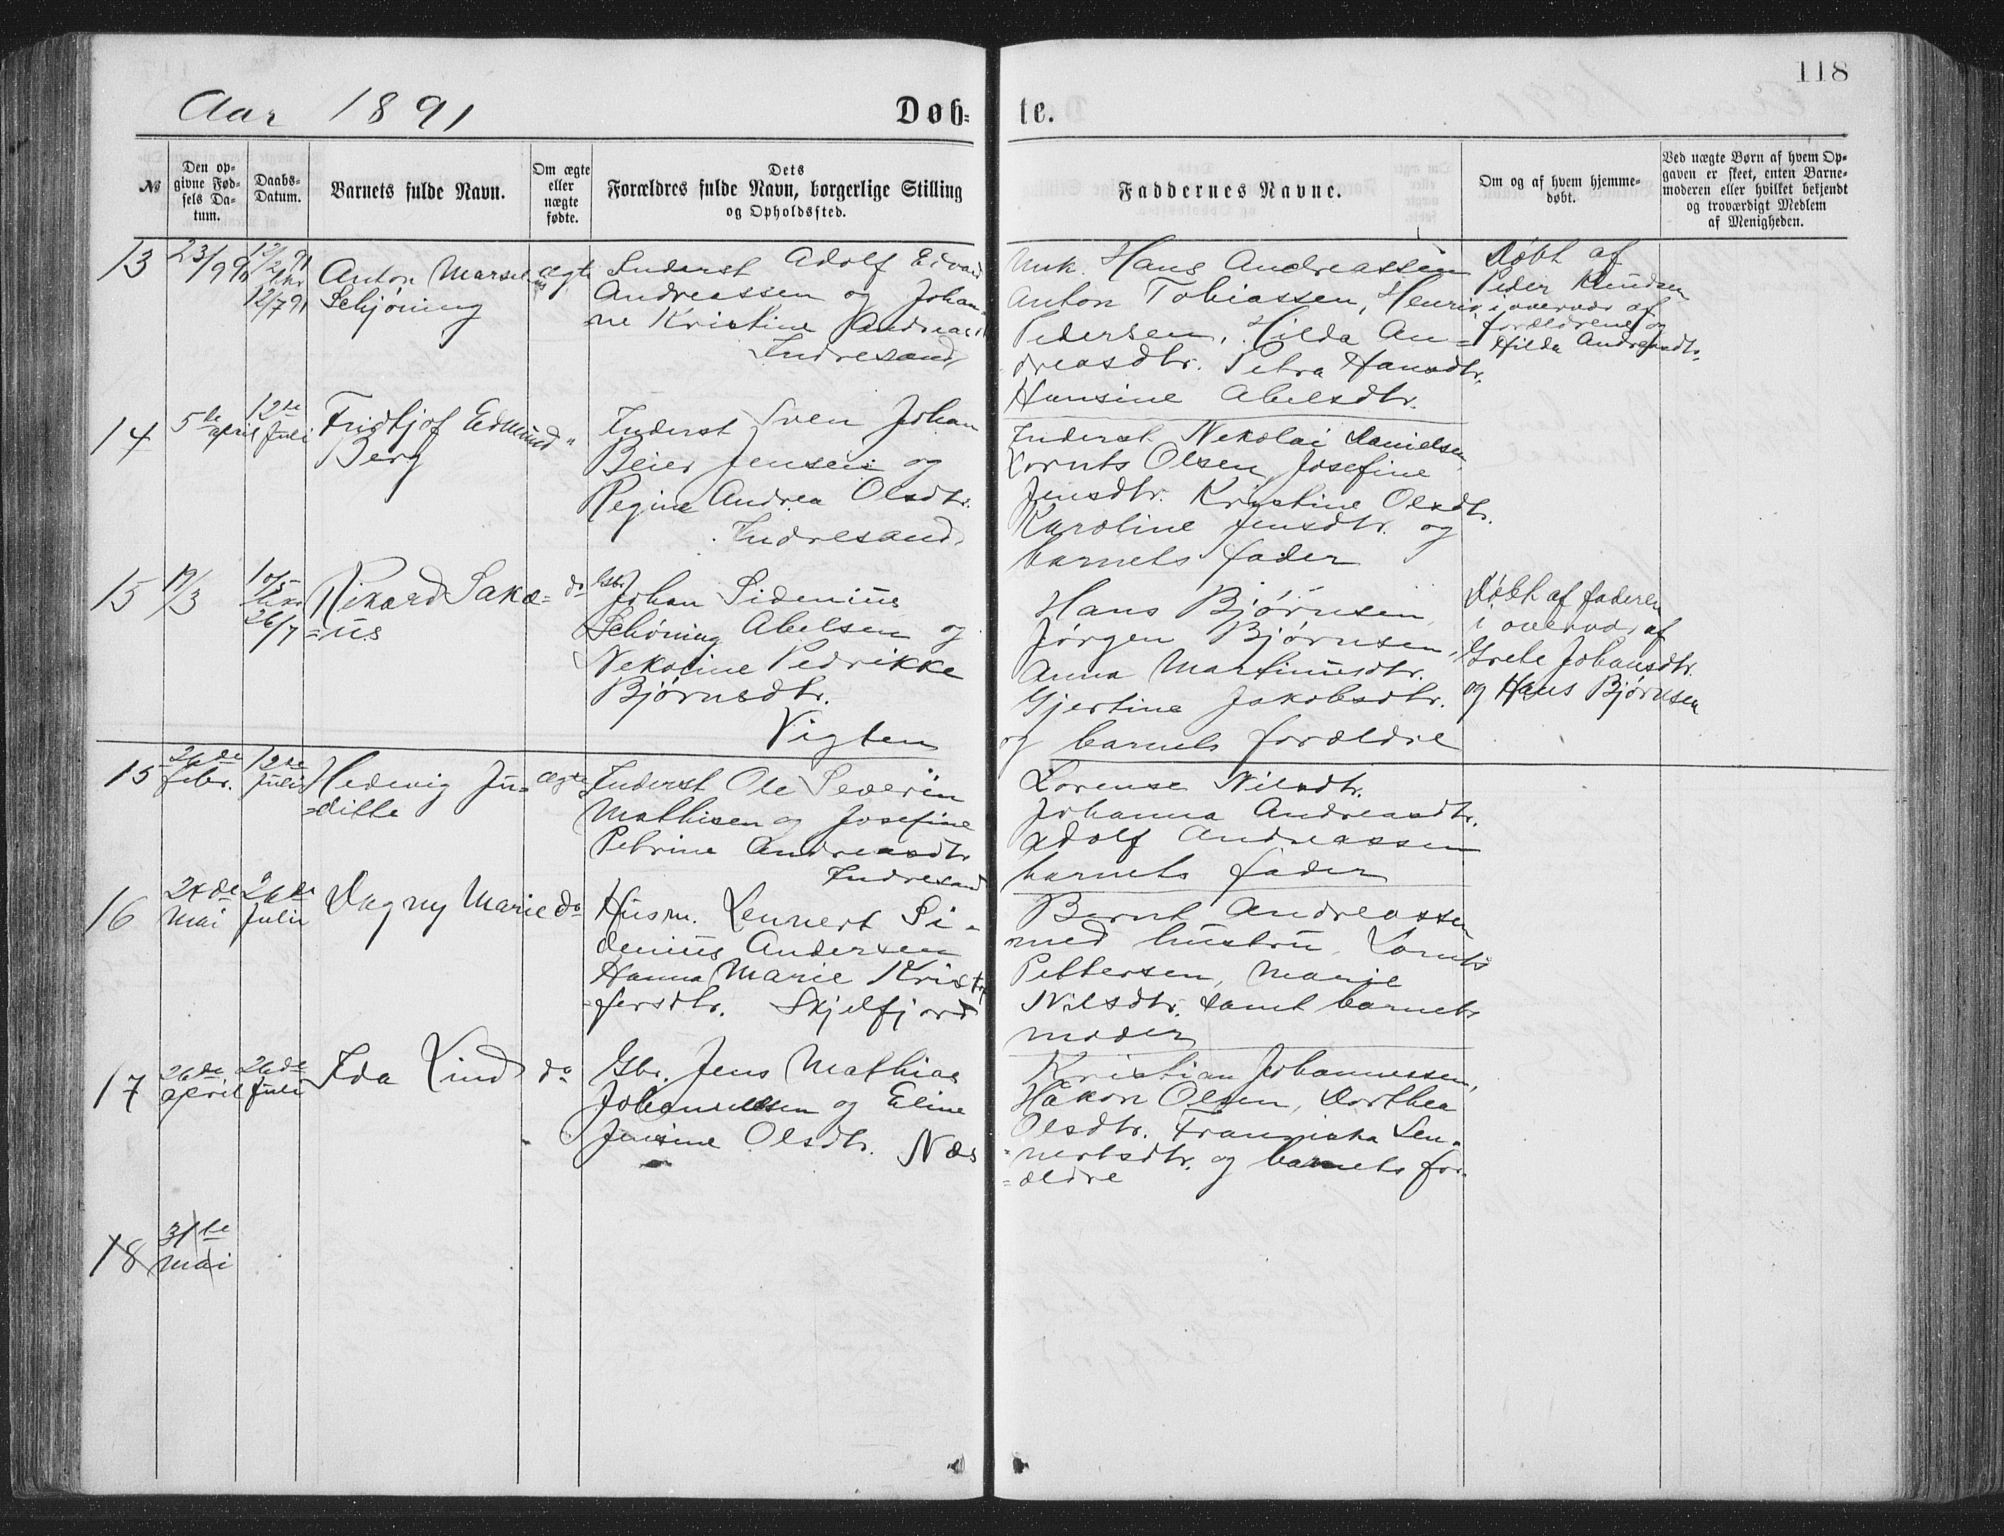 118
Aar 1891
Døb-
te.
№
Den op-
givne Fød-
sels Da-
tum.
Daabs-
Datum.
Barnets fulde Navn.
Om ægte
eller
uægte
fødte.
Dets
Forældres fulde Navn, borgerlige Stilling
og Opholdssted.
Faddernes Navne.
Om og af hvem hjemme-
døbt.
Ved uægte Børn af hvem Op-
gaven er skeet, enten Barne-
moderen eller hvilket bekjendt
og troværdigt Medlem
af Menigheden.
13
23/9 90
12/7 91
Anton Marseli
Schjøning
ægte
Inderst Adolf Edvard
Andreassen og Johan-
ne Kristine Andreasd
Indresand
Unk. Hans Andreassen
Anton Tobiassen, Henrik
Pedersen, Hilda An-
dreasdtr. Petra Hansdtr.
Hansine Abelsdtr.
Døbt af
Peder Knudsen
i overvær af
forældrene og
Hilda Andreasdtr.
14
5te april
12te Juli
Fridtjof Edmund
Berg
"
Inderst Sven Johan
Beier Jensen og
Regine Andrea Olsdtr.
Indresand
Inderst Nekolai Danielsen,
Lornts Olsen, Josefine
Jensdtr. Kristine Olsdtr.
Karoline Jensdtr. og
barnets fader
15
19/3
10/5
26/7
Rikard Sakæ-
-us
do
Gbr. Johan Sidenius
Schöning Abelsen og
Nekoline Pedrikke
Bjørnsdtr.
Vigten
Hans Bjørnsen,
Jørgen Bjørnsen,
Anna Martinusdtr.
Gjertine Jakobsdtr.
og barnets forældre
Døbt af faderen
i overvær af
Grete Johansdtr.
og Hans Bjørnsen
15
26de febr.
12te Juli
Hedevig Ju-
-ditte
ægte
Inderst Ole Severin
Mathisen og Josefine
Petrine Andreasdtr
Indresand
Lorense Nilsdtr.
Johanna Andreasdtr.
Adolf Andreassen
barnets fader
16
24de Mai
26de Juli
Dagny Marie
do
Husm. Lennert Si-
denius Andersen
Hanna Marie Krist
-fersdtr. Skjelfjord
Bernt Andreassen
med hustru, Lornts
Pettersen, Marie
Nilsdtr. samt barnets
moder
17
26de april
26de Juli
Ida Lind
do
Gbr. Jens Mathias
Johannessen og Eline
Jensine Olsdtr. Næs
Kristian Johannessen,
Håkon Olsen, Dorthea
Olsdtr. Franziska Len-
-nertsdtr. og barnets for-
-ældre
18
31te
Mai